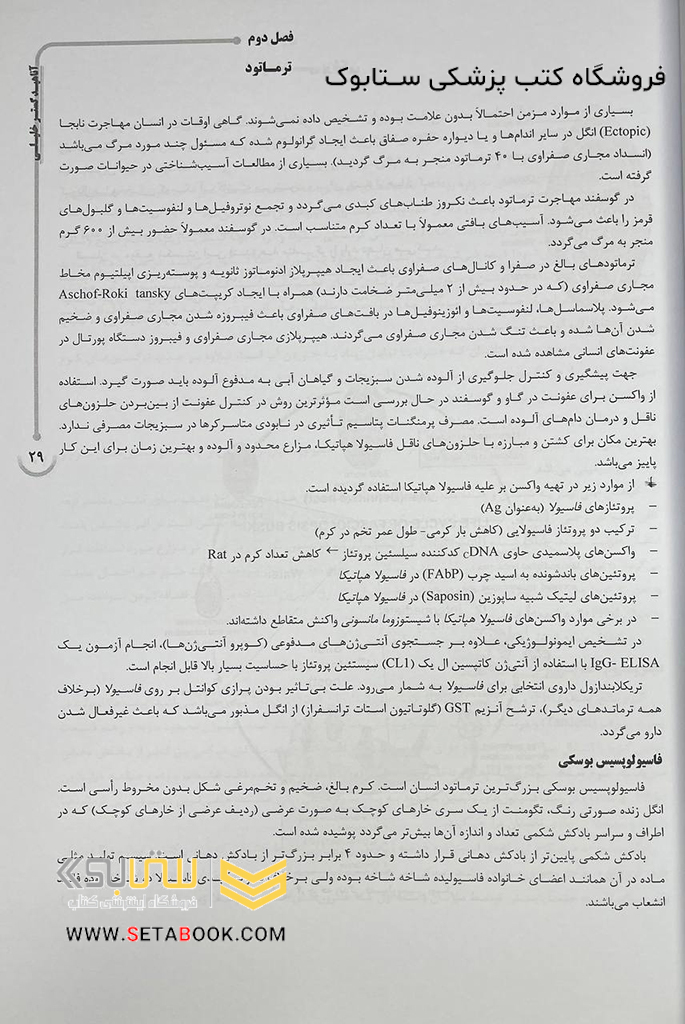 فصل دوم
ترماتود
فروشگاه کتب پزشکی ستابوک
آناهید گستر خلیلی
بسیاری از موارد مزمن احتمالاً بدون علامت بوده و تشخیص داده نمی‌شوند. گاهی اوقات در انسان مهاجرت نابجا
(Ectopic) انگل در سایر اندام‌ها و یا دیواره حفره صفاق باعث ایجاد گرانولوم شده که مسئول چند مورد مرگ می‌باشد
(انسداد مجاری صفراوی با ۴۰ ترماتود منجر به مرگ گردید). بسیاری از مطالعات آسیب‌شناختی در حیوانات صورت
گرفته است.
در گوسفند مهاجرت ترماتود باعث نکروز طناب‌های کبدی می‌گردد و تجمع نوتروفیل‌ها و لنفوسیت‌ها و گلبول‌های
قرمز را باعث می‌شود. آسیب‌های بافتی معمولاً با تعداد کرم متناسب است. در گوسفند معمولاً حضور بیش از ۶۰۰ گرم
منجر به مرگ می‌گردد.
ترماتودهای بالغ در صفرا و کانال‌های صفراوی باعث ایجاد هیپرپلاز ادنوماتوز ثانویه و پوسته‌ریزی اپیلتیوم مخاط
مجاری صفراوی (که در حدود بیش از ۲ میلی‌متر ضخامت دارند) همراه با ایجاد کریپت‌های Aschof-Roki tansky
می‌شود. پلاسماسل‌ها، لنفوسیت‌ها و ائوزینوفیل‌ها در بافت‌های صفراوی باعث فیبروزه شدن مجاری صفراوی و ضخیم
شدن آن‌ها شده و باعث تنگ شدن مجاری صفراوی می‌گردند. هیپرپلازی مجاری صفراوی و فیبروز دستگاه پورتال در
عفونت‌های انسانی مشاهده شده است.
جهت پیشگیری و کنترل جلوگیری از آلوده شدن سبزیجات و گیاهان آبی به مدفوع آلوده باید صورت گیرد. استفاده
از واکسن برای عفونت در گاو و گوسفند در حال بررسی است مؤثرترین روش در کنترل عفونت از بین‌بردن حلزون‌های
ناقل و درمان دام‌های آلوده است. مصرف پرمنگنات پتاسیم تأثیری در نابودی متاسرکرها در سبزیجات مصرفی ندارد.
بهترین مکان برای کشتن و مبارزه با حلزون‌های ناقل فاسیولا هپاتیکا، مزارع محدود و آلوده و بهترین زمان برای این کار
پاییز می‌باشد.
۲۹
از موارد زیر در تهیه واکسن بر علیه فاسیولا هپاتیکا استفاده گردیده است.
– پروتئازهای فاسیولا (به‌عنوان Ag)
– ترکیب دو پروتئاز فاسیولایی (کاهش بار کرمی- طول عمر تخم در کرم)
– واکسن‌های پلاسمیدی حاوی cDNA کدکننده سیلسئین پروتئاز ← کاهش تعداد کرم در Rat
– پروتئین‌های باندشونده به اسید چرب (FAbP) در فاسیولا هپاتیکا
– پروتئین‌های لیتیک شبیه ساپوزین (Saposin) در فاسیولا هپاتیکا
– در برخی موارد واکسن‌های فاسیولا هپاتیکا با شیستوزوما مانسونی واکنش متقاطع داشته‌اند.
در تشخیص ایمونولوژیکی، علاوه بر جستجوی آنتی‌ژن‌های مدفوعی (کوپرو آنتی‌ژن‌ها)، انجام آزمون یک
IgG- ELISA با استفاده از آنتی‌ژن کاتپسین ال یک (CL1) سیستئین پروتئاز با حساسیت بسیار بالا قابل انجام است.
تریکلابندازول داروی انتخابی برای فاسیولا به شمار می‌رود. علت بی‌تاثیر بودن پرازی کوانتل بر روی فاسیولا (برخلاف
همه ترماتدهای دیگر)، ترشح آنزیم GST (گلوتاتیون استات ترانسفراز) از انگل مذبور می‌باشد که باعث غیرفعال شدن
دارو می‌گردد.
فاسیولوپسیس بوسکی
فاسیولوپسیس بوسکی بزرگ‌ترین ترماتود انسان است. کرم بالغ، ضخیم و تخم‌مرغی شکل بدون مخروط رأسی است.
انگل زنده صورتی رنگ، تگومنت از یک سری خارهای کوچک به صورت عرضی (ردیف عرضی از خارهای کوچک) که در
اطراف و سراسر بادکش شکمی تعداد و اندازه آن‌ها بیش‌تر می‌گردد پوشیده شده است.
بادکش شکمی پایین‌تر از بادکش دهانی قرار داشته و حدود ۴ برابر بزرگ‌تر از بادکش دهانی است. سیستم تولید مثلی
ماده در آن همانند اعضای خانواده فاسیولیده شاخه شاخه بوده ولی
انشعاب می‌باشند.
ستابوک
فروشگاه اینترنتی کتاب
WWW.SETABOOK.COM